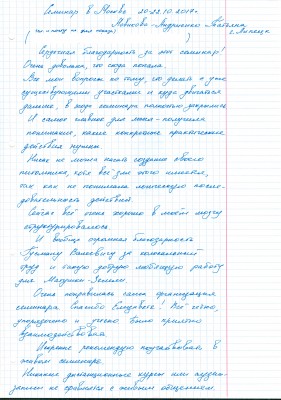 Семинар в Москве 20-22.10.2017г.
Татьяна
г. Липецк
Сердечная благодарность за этот семинар!
Очень довольна, что сюда попала.
Все мои вопросы по тому, что делать с уже
существующими участками и куда двигаться
дальше, в ходе семинара полностью закрылись.
И самое главное для меня - получила
понимание, какие конкретные практические
действия нужны.
Никак не могла начать создание своего
питомника, хотя всё для этого имелось,
так как не понимала логическую после-
довательность действий.
Сейчас всё очень хорошо в моём мозгу
структурировалось.
И вообще огромная благодарность
за колоссальный
труд и такую добрую любящую работу
для Матушки-Земли!
Очень понравилась сама организация
семинара. Спасибо Елизавете! Всё чётко,
упорядочено и легко было приятно
взаимодействовать.
Искренне рекомендую поучаствовать в
живом семинаре.
Никакие дистанционные курсы или аудио-
записи не сравнятся с живым общением.